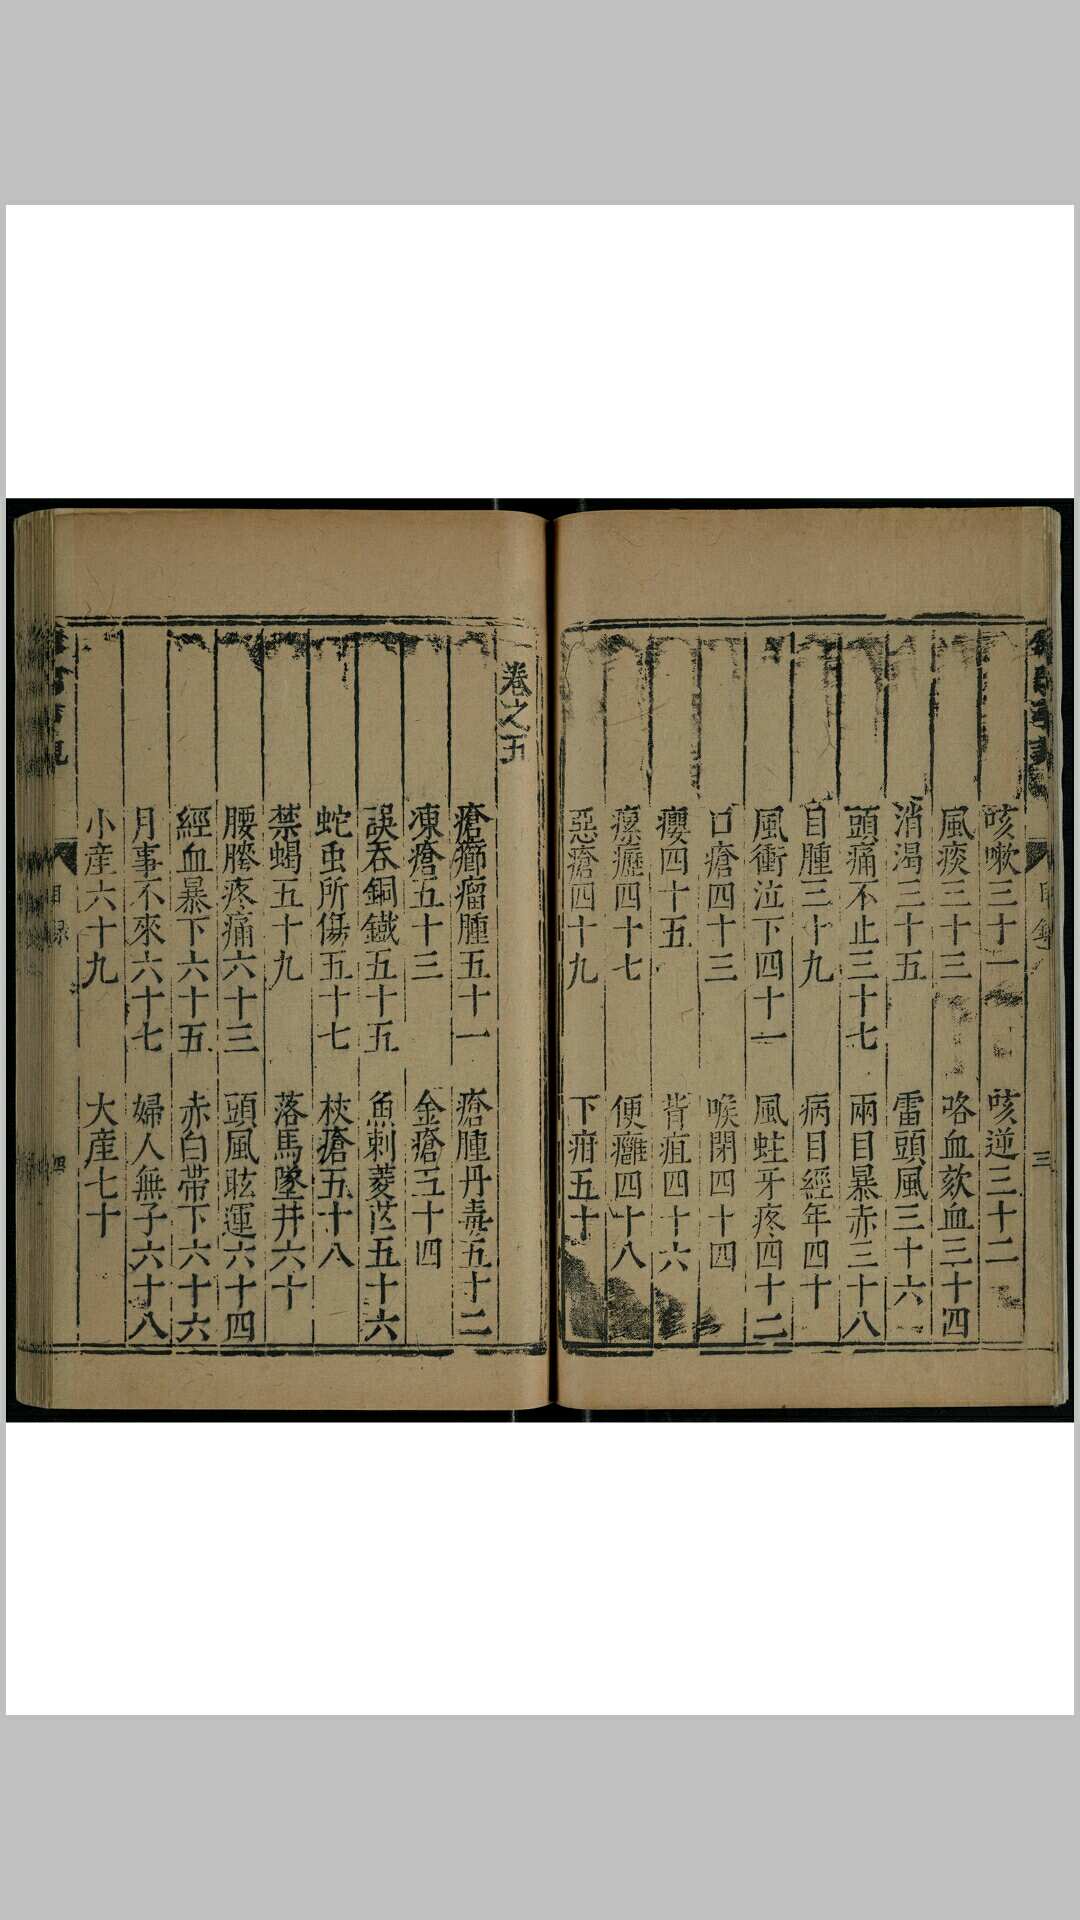 目錄
三
咳嗽三十一　咳逆三十二
風痰三十三　咯血欬血三十四
消渴三十五　雷頭風三十六
頭痛不止三十七　兩目暴赤三十八
目腫三十九　病目經年四十
風衝泣下四十一　風蛀牙疼四十二
口瘡四十三　喉閉四十四
癭四十五　背疽四十六
瘰癧四十七　便癰四十八
惡瘡四十九　下疳五十
卷之五
瘡癤瘤腫五十一　瘡腫丹毒五十二
凍瘡五十三　金瘡五十四
誤吞銅鐵五十五　魚刺菱芒五十六
蛇虫所傷五十七　杖瘡五十八
禁蝎五十九　落馬墜井六十
腰胯疼痛六十三　頭風眩運六十四
經血暴下六十五　赤白帶下六十六
月事不來六十七　婦人無子六十八
小産六十九　大産七十
目錄
四